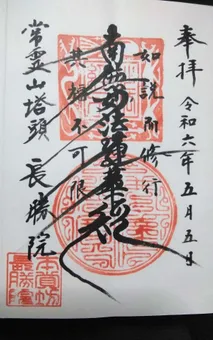 奉拝 令和六年五月五日
如説而修行
南無妙法蓮華経
其福不可限
常霊山塔頭 長勝院